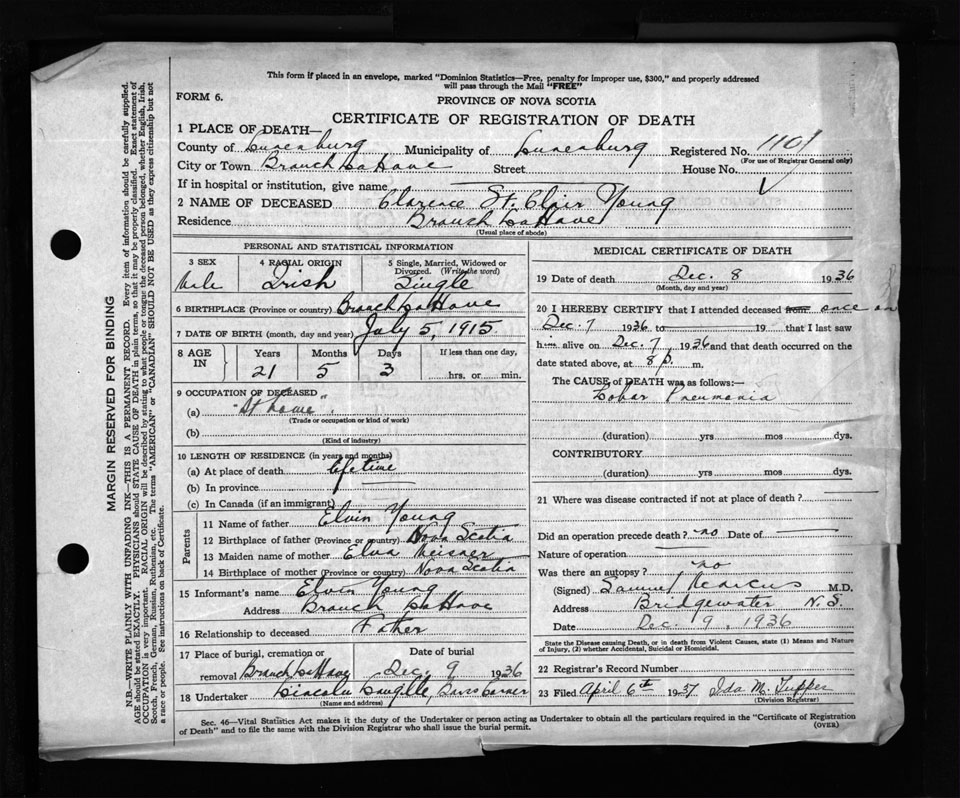 This form if placed in an envelope, marked "Dominion Statistics—Free, penalty for improper use, $300," and properly addressed
will pass through the Mail "FREE"
FORM 6.
PROVINCE OF NOVA SCOTIA
CERTIFICATE OF REGISTRATION OF DEATH
1 PLACE OF DEATH—
County of Lunenburg Municipality of Lunenburg Registered No. 1101
(For use of Registrar General only)
City or Town Branch LaHave Street House No.
If in hospital or institution, give name
2 NAME OF DECEASED Clarence St. Clair Young
Residence Branch LaHave
(Usual place of abode)
PERSONAL AND STATISTICAL INFORMATION
3 SEX 4 RACIAL ORIGIN 5 Single, Married, Widowed or Divorced. (Write the word)
Male Irish Single
6 BIRTHPLACE (Province or country) Branch LaHave
7 DATE OF BIRTH (month, day and year) July 5, 1915
8 AGE IN Years Months Days If less than one day,
21 5 3 hrs. or min.
9 OCCUPATION OF DECEASED
(a) "At home".
(Trade or occupation or kind of work)
(b)
(Kind of industry)
10 LENGTH OF RESIDENCE (in years and months)
(a) At place of death lifetime
(b) In province
(c) In Canada (if an immigrant)
Parents
11 Name of father Elvin Young
12 Birthplace of father (Province or country) Nova Scotia
13 Maiden name of mother Elva Meisner
14 Birthplace of mother (Province or country) Nova Scotia
15 Informant's name Elvin Young
Address Branch LaHave
16 Relationship to deceased Father
17 Place of burial, cremation or removal Branch LaHave Date of burial Dec. 9 1936
18 Undertaker Lincoln Corner
(Name and address)
MEDICAL CERTIFICATE OF DEATH
19 Date of death Dec. 8 1936
(Month, day and year)
20 I HEREBY CERTIFY that I attended deceased from once on
Dec. 7 1936 to 19 that I last saw
him alive on Dec. 7, 1936 and that death occurred on the
date stated above, at 8 p. m.
The CAUSE of DEATH was as follows:
Lobar Pneumonia
(duration) yrs mos dys.
CONTRIBUTORY
(duration) yrs. mos. dys.
21 Where was disease contracted if not at place of death?
Did an operation precede death? no Date of
Nature of operation
Was there an autopsy? no
(Signed) Samuel Marcus M.D.
Address Bridgewater N.S.
Date Dec. 9, 1936
State the Disease causing Death, or in death from Violent Causes, state (1) Means and Nature
of Injury, (2) whether Accidental, Suicidal or Homicidal.
22 Registrar's Record Number
23 Filed April 6th 1937 Ida M. Tupper
(Division Registrar)
Sec. 46—Vital Statistics Act makes it the duty of the Undertaker or person acting as Undertaker to obtain all the particulars required in the "Certificate of Registration
of Death" and to file the same with the Division Registrar who shall issue the burial permit.
(OVER)
MARGIN RESERVED FOR BINDING
N.B.—WRITE PLAINLY WITH UNFADING INK—THIS IS A PERMANENT RECORD. Every item of information should be carefully supplied.
AGE should be stated EXACTLY. PHYSICIANS should STATE CAUSE OF DEATH in plain terms, so that it may be properly classified. Exact statement of
OCCUPATION is very important. RACIAL ORIGIN will be described by stating to what people or tongue the deceased person belonged, whether English, Irish,
Scotch, French, German, Russian, Ruthenian, etc. The terms "AMERICAN" or "CANADIAN" SHOULD NOT BE USED as they express citizenship but not
a race or people. See instructions on back of Certificate.